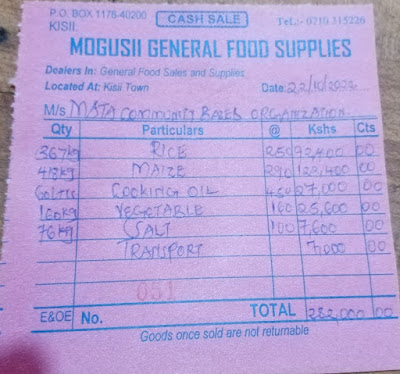 P.O. BOX 1178-40200
KISII.
CASH SALE
Tel.:- 0210 315226
MOGUSII GENERAL FOOD SUPPLIES
Dealers In: General Food Sales and Supplies
Located At: Kisii Town
Date: 22/10/2022
M/s MATA COMMUNITY BASED ORGANIZATION
Qty Particulars @ Kshs Cts
367kg RICE 250 92,400 00
418kg MAIZE 290 00
60LTRS COOKING OIL 450 27,000 00
160kg VEGETABLE 160 25,600 00
76kg SALT 100 7,600 00
TRANSPORT 7,000 00
051
E&OE No. TOTAL 282,000 00
Goods once sold are not returnable